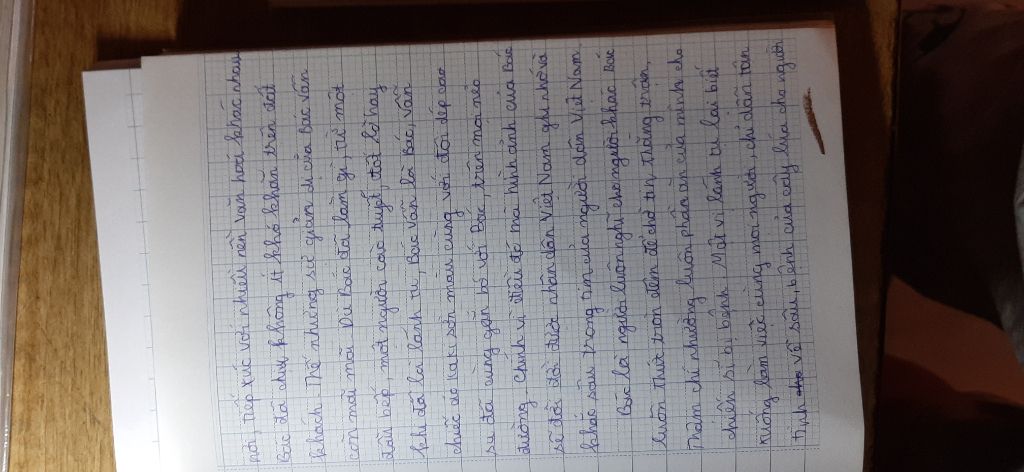 nơi, tiếp xúc với nhiều nền văn hoá khác nhau
Bác đã chịu không ít khó khăn trên đất
khách. Thế nhưng sự giản dị của Bác vẫn
còn mãi mãi. Dù Bác đã làm gì, từ một
đầu bếp, một người cào tuyết, đốt lò hay
khi đã là lãnh tụ, Bác vẫn là Bác, vẫn
chiếc áo ka ki sờn màu cùng với đôi dép cao
su đã cùng gắn bó với Bác, trên mọi nẻo
đường. Chính vì điều đó mà hình ảnh của Bác
sẽ đời đời được nhân dân Việt Nam ghi nhớ và
khắc sâu trong tim của người dân Việt Nam.
Bác là người luôn nghĩ cho người khác. Bác
luôn thức trọn đêm để chờ tin thắng trận,
Thậm chí nhường luôn phần ăn của mình cho
chiến sĩ bị bệnh. Một vị lãnh tụ lại biết
xuống làm việc cùng mọi người, chỉ dẫn tận
tình về sâu, bệnh của cây lúa cho người